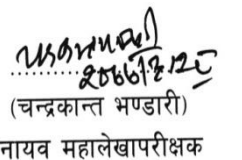 २०७७।९।२८
(चन्द्रकान्त भण्डारी)
नायव महालेखापरीक्षक